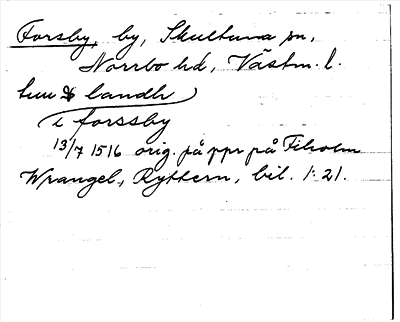 Forsby, by, Skultuna sn,
Norrbo hd, Västm. l.
i forssby
13/7 1516 orig. på ppr på Fiholm
Wrangel, Ryttern, bil. 1:21.